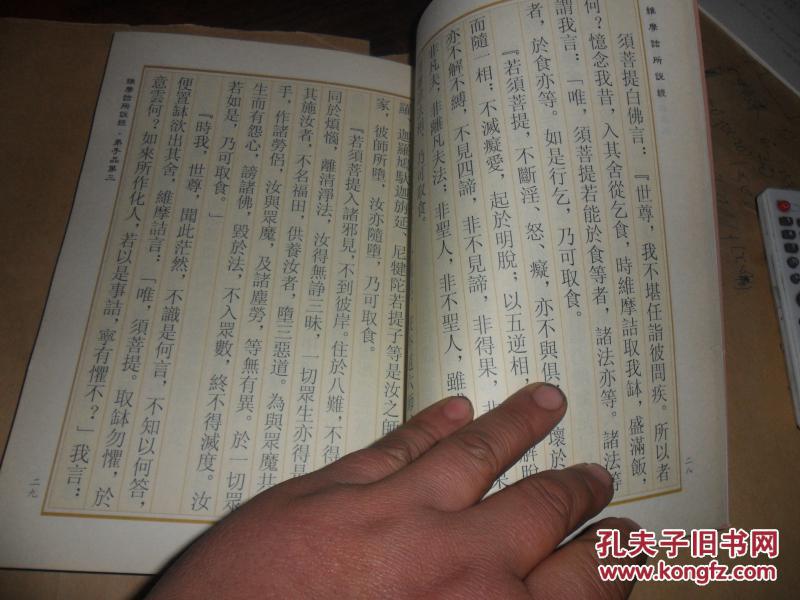 維摩詰所說經
須菩提白佛言：『世尊，我不堪任詣彼問疾。所以者
何？憶念我昔，入其舍從乞食，時維摩詰取我缽，盛滿飯，
謂我言：「唯，須菩提若能於食等者，諸法亦等。諸法等
者，於食亦等。如是行乞，乃可取食。
『若須菩提，不斷淫、怒、癡，亦不與俱 壞於
而隨一相；不滅癡愛，起於明脫；以五逆相， 解脫
亦不解不縛，不見四諦，非不見諦，非得果，非 果
非凡夫，非離凡夫法；非聖人，非不聖人，雖成
乃可取食。
二八
羅、迦羅鳩馱迦旃延、尼犍陀若提子等是汝之師
家，彼師所墮，汝亦隨墮，乃可取食。
『若須菩提入諸邪見，不到彼岸。住於八難，不得
同於煩惱，離清淨法，汝得無諍三昧，一切眾生亦得是
其施汝者，不名福田，供養汝者，墮三惡道。為與眾魔共
手，作諸勞侶，汝與眾魔，及諸塵勞，等無有異。於一切眾
生而有怨心，謗諸佛，毀於法，不入眾數，終不得滅度。汝
若如是，乃可取食。」
『時我，世尊，聞此茫然，不識是何言，不知以何答，
便置缽欲出其舍，維摩詰言：「唯，須菩提。取缽勿懼，於
意云何？如來所作化人，若以是事詰，寧有懼不？」我言：
維摩詰所說經·弟子品第三
二九
孔夫子旧书网
www.kongfz.com